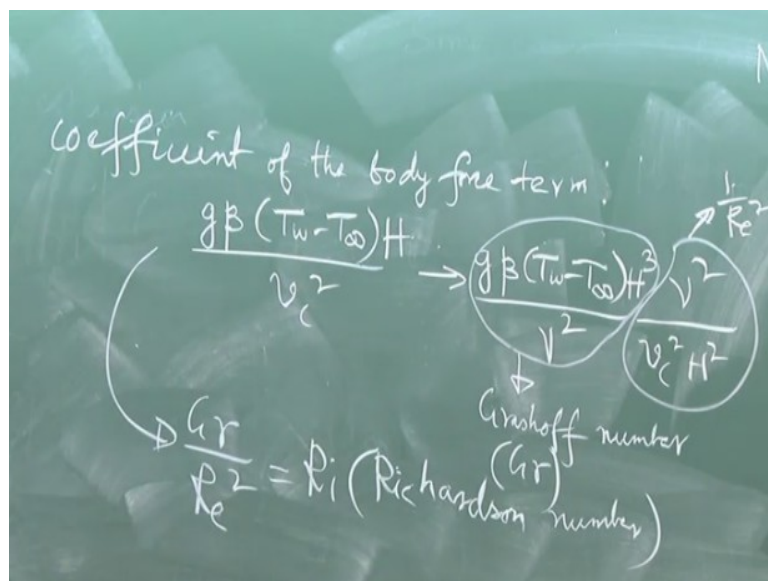 N
coefficient of the body force term:
gβ(T_w-T_∞)H / v_c² → gβ(T_w-T_∞)H³ / ν² ν² / v_c² H² ↗ 1 / Re²
↓
Grashoff number
(Gr)
Gr / Re² = Ri (Richardson number)